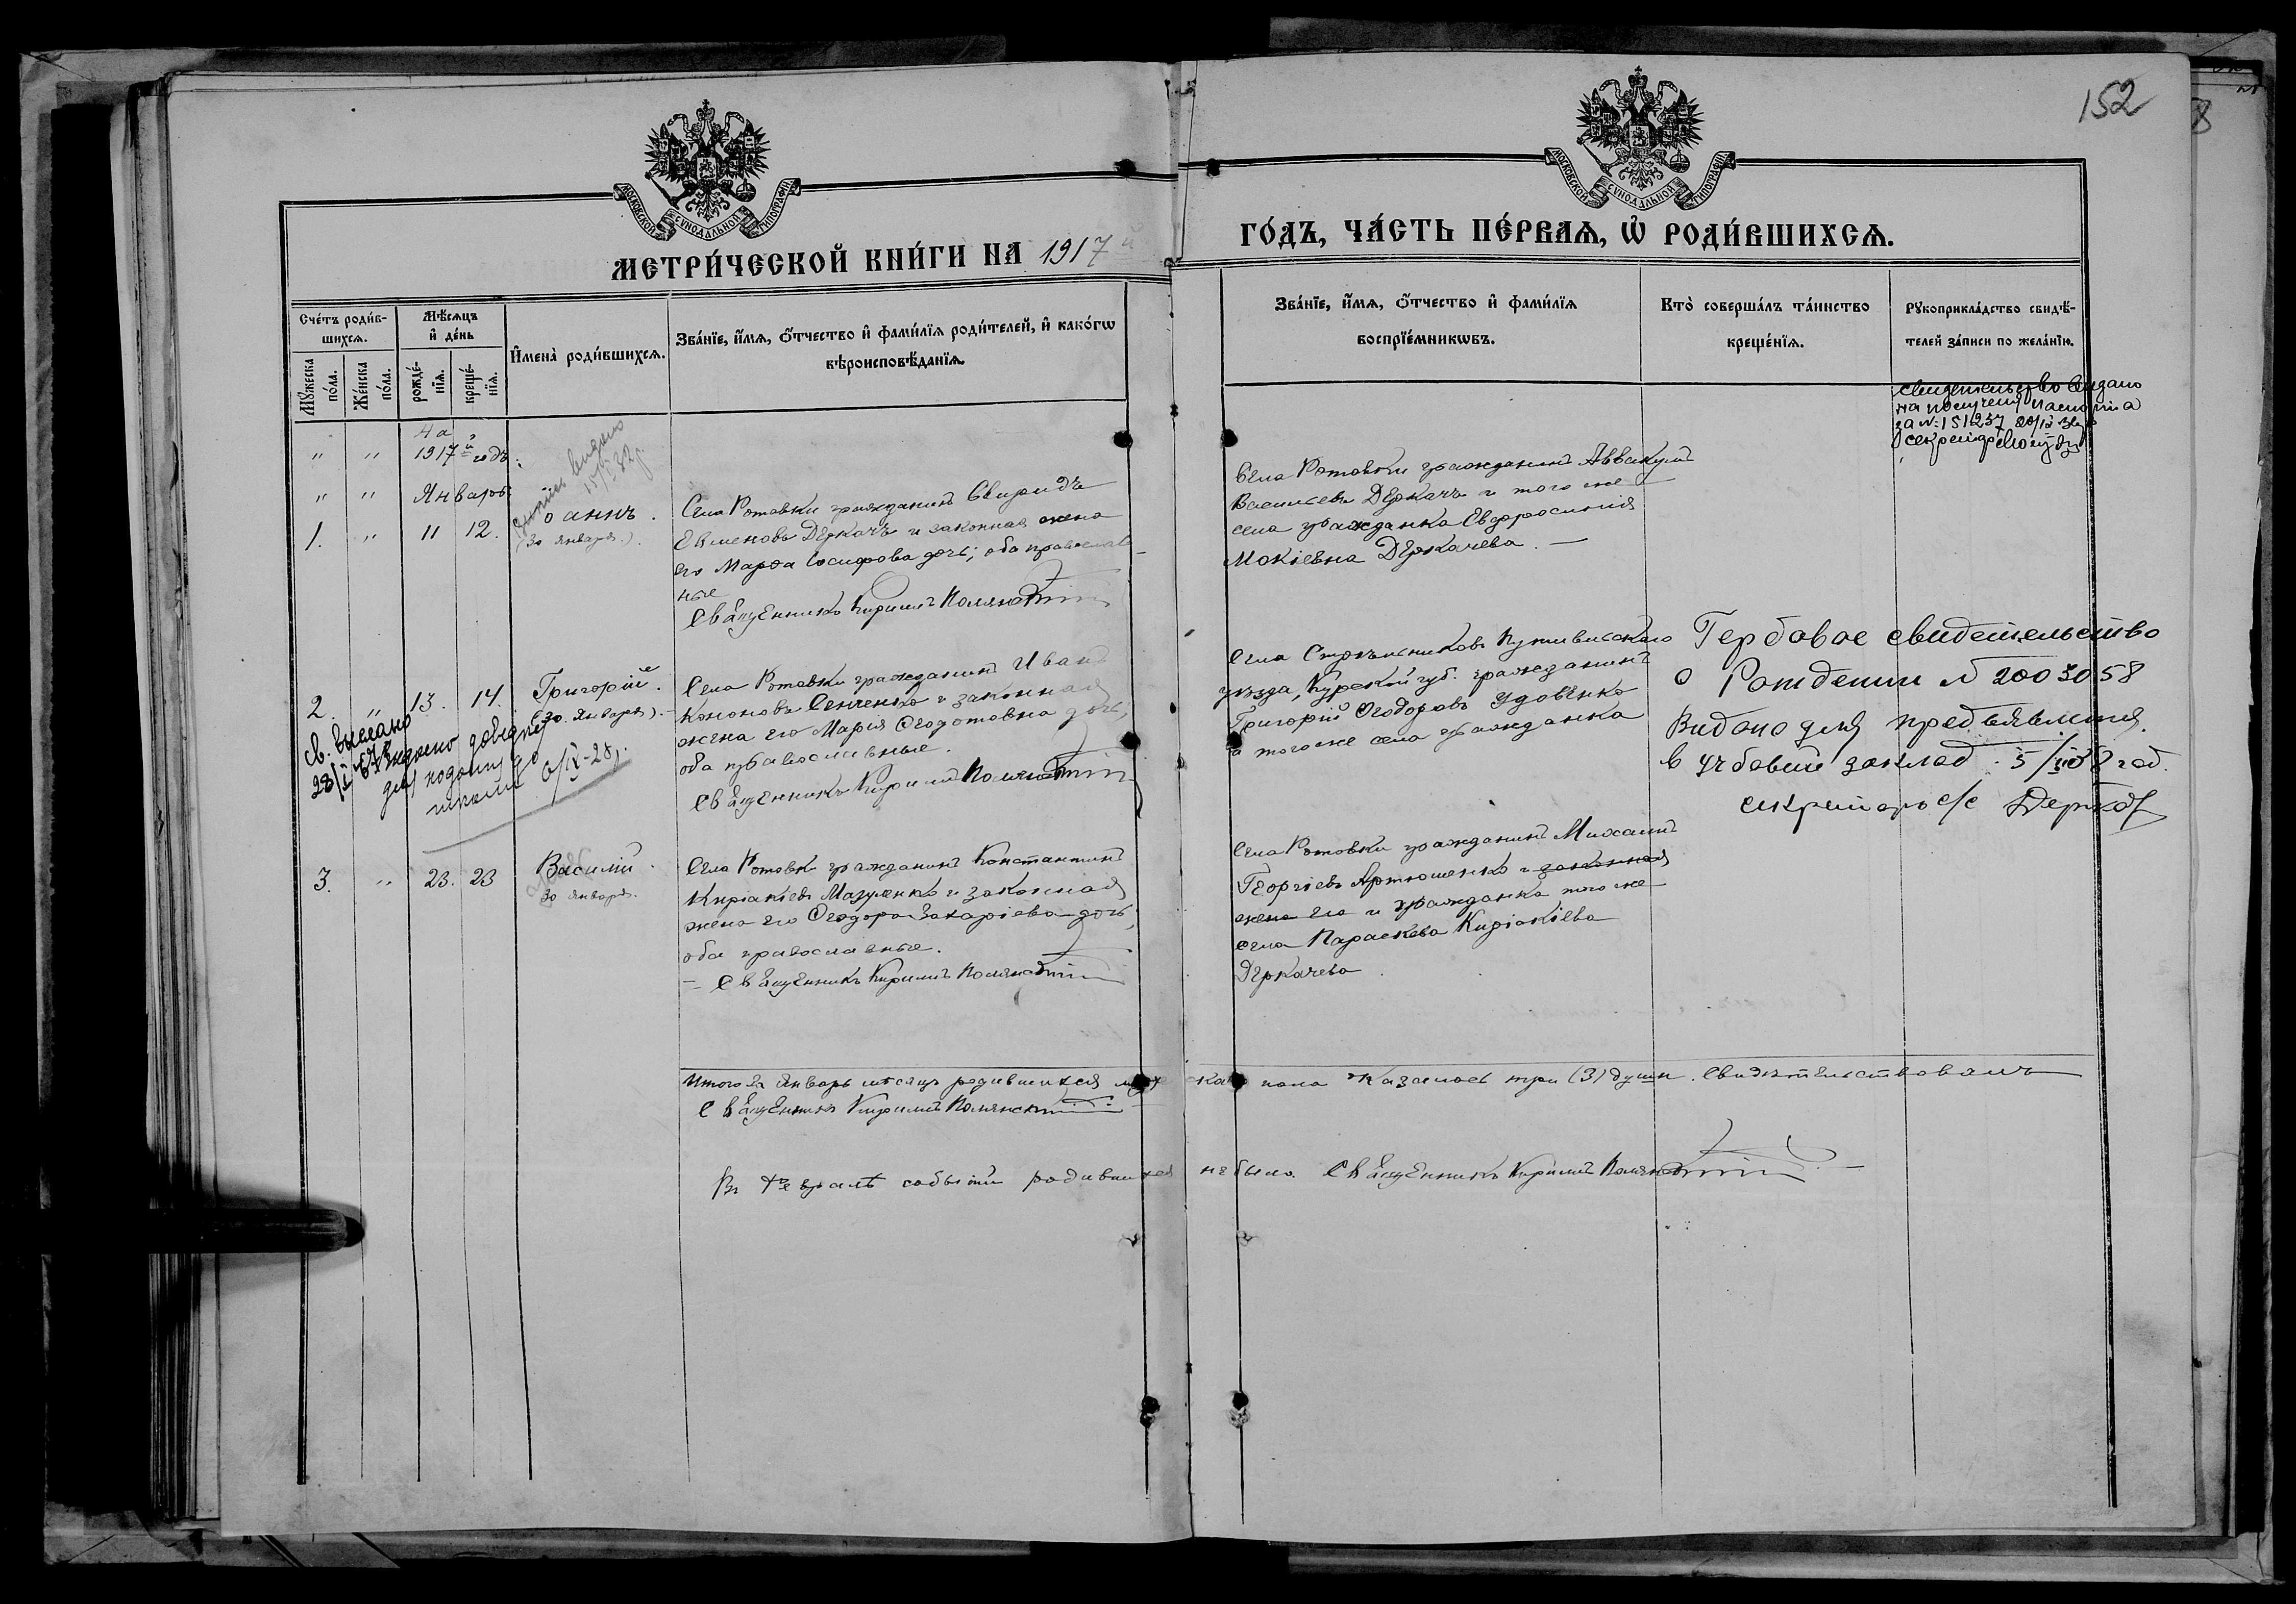 152
МОСКОВСКОЙ СУНОДАЛЬНОЙ ТИПОГРАФІИ
МОСКОВСКОЙ СУНОДАЛЬНОЙ ТИПОГРАФІИ
МЕТРИ́ЧЕСКОЙ КНИ́ГИ НА 1917 й
ГО́ДЪ, ЧА́СТЬ ПЕ́РВАѦ, Ѽ РОДИ́ВШИХСѦ.
Сче́тъ роди́в-
шихсѧ.
Мꙋ́жеска
по́ла.
Же́нска
по́ла.
Мѣ́сѧцъ
и҆ де́нь
рожде́-
нїѧ.
креще́-
нїѧ.
И҆мена̀ роди́вшихсѧ.
Зва́нїе, и҆́мѧ, ѻ҆́тчество и҆ фами́лїѧ роди́телей, и҆ како́гѡ
вѣроисповѣ́данїѧ.
Зва́нїе, и҆́мѧ, ѻ҆́тчество и҆ фами́лїѧ
воспрїе́мникѡвъ.
Кто̀ соверша́лъ та́инство
креще́нїѧ.
Рꙋкоприкла́дство свидѣ́-
телей за́писи по жела́нїю.
Свидетельство видано
на получени паспорта
за №: 151237
секретар
" " 1917й годъ.
" " Январь.
видано
15/ 32 р.
1. " 11 12. Іоаннъ.
(30 января.).
Села Ротовки гражданинъ Свиридъ
Евменовъ Деркачъ и законная жена
его Марѳа Іосифова дочь; оба православ-
ные
Священникъ Кириллъ Полянскій
Села Ротовки гражданинъ Аввакумъ
Васильевъ Деркачъ и того же
села гражданка Евфросинія
Мокіевна Деркачева. —
2. " 13. 14. Григорій.
(30. Января).
св. выслано
28/I 37 видано довідку
для подачи до
школи 6/IX-28 р.
Села Ротовки гражданинъ Иванъ
Кононовъ Сенченко и законная
жена его Марія Ѳеодотовна дочь,
оба православные.
Священникъ Кириллъ Полянскій
Села Стрѣльниковъ Путивльскаго
уѣзда, Курской губ. гражданинъ
Григорій Ѳеодоровъ Удовенко
и того же села гражданка
Гербовое свидетельство
о Рождении № 2003058
Видано для предъявления
в учбовий заклад 5/ 38 год.
секретарь с/с Деркач
3. " 23. 23 Василій.
30 января.
Села Ротовки гражданинъ Константинъ
Киріакіевъ Мазуленко и законная
жена его Ѳеодора Захаріева дочь,
оба православные.
— Священникъ Кириллъ Полянскій
Села Ротовки гражданинъ Михаилъ
Георгіевъ Артюшенко и законная
жена его и гражданка того же
села Параскева Киріакіева
Деркачева.
Итого за Январь мѣсяцъ родившихся мужескаго пола казалось три (3) души. Свидѣтельствовалъ
Священникъ Кириллъ Полянскій
Въ Февралѣ событій родившихся не было. Священникъ Кириллъ Полянскій. —